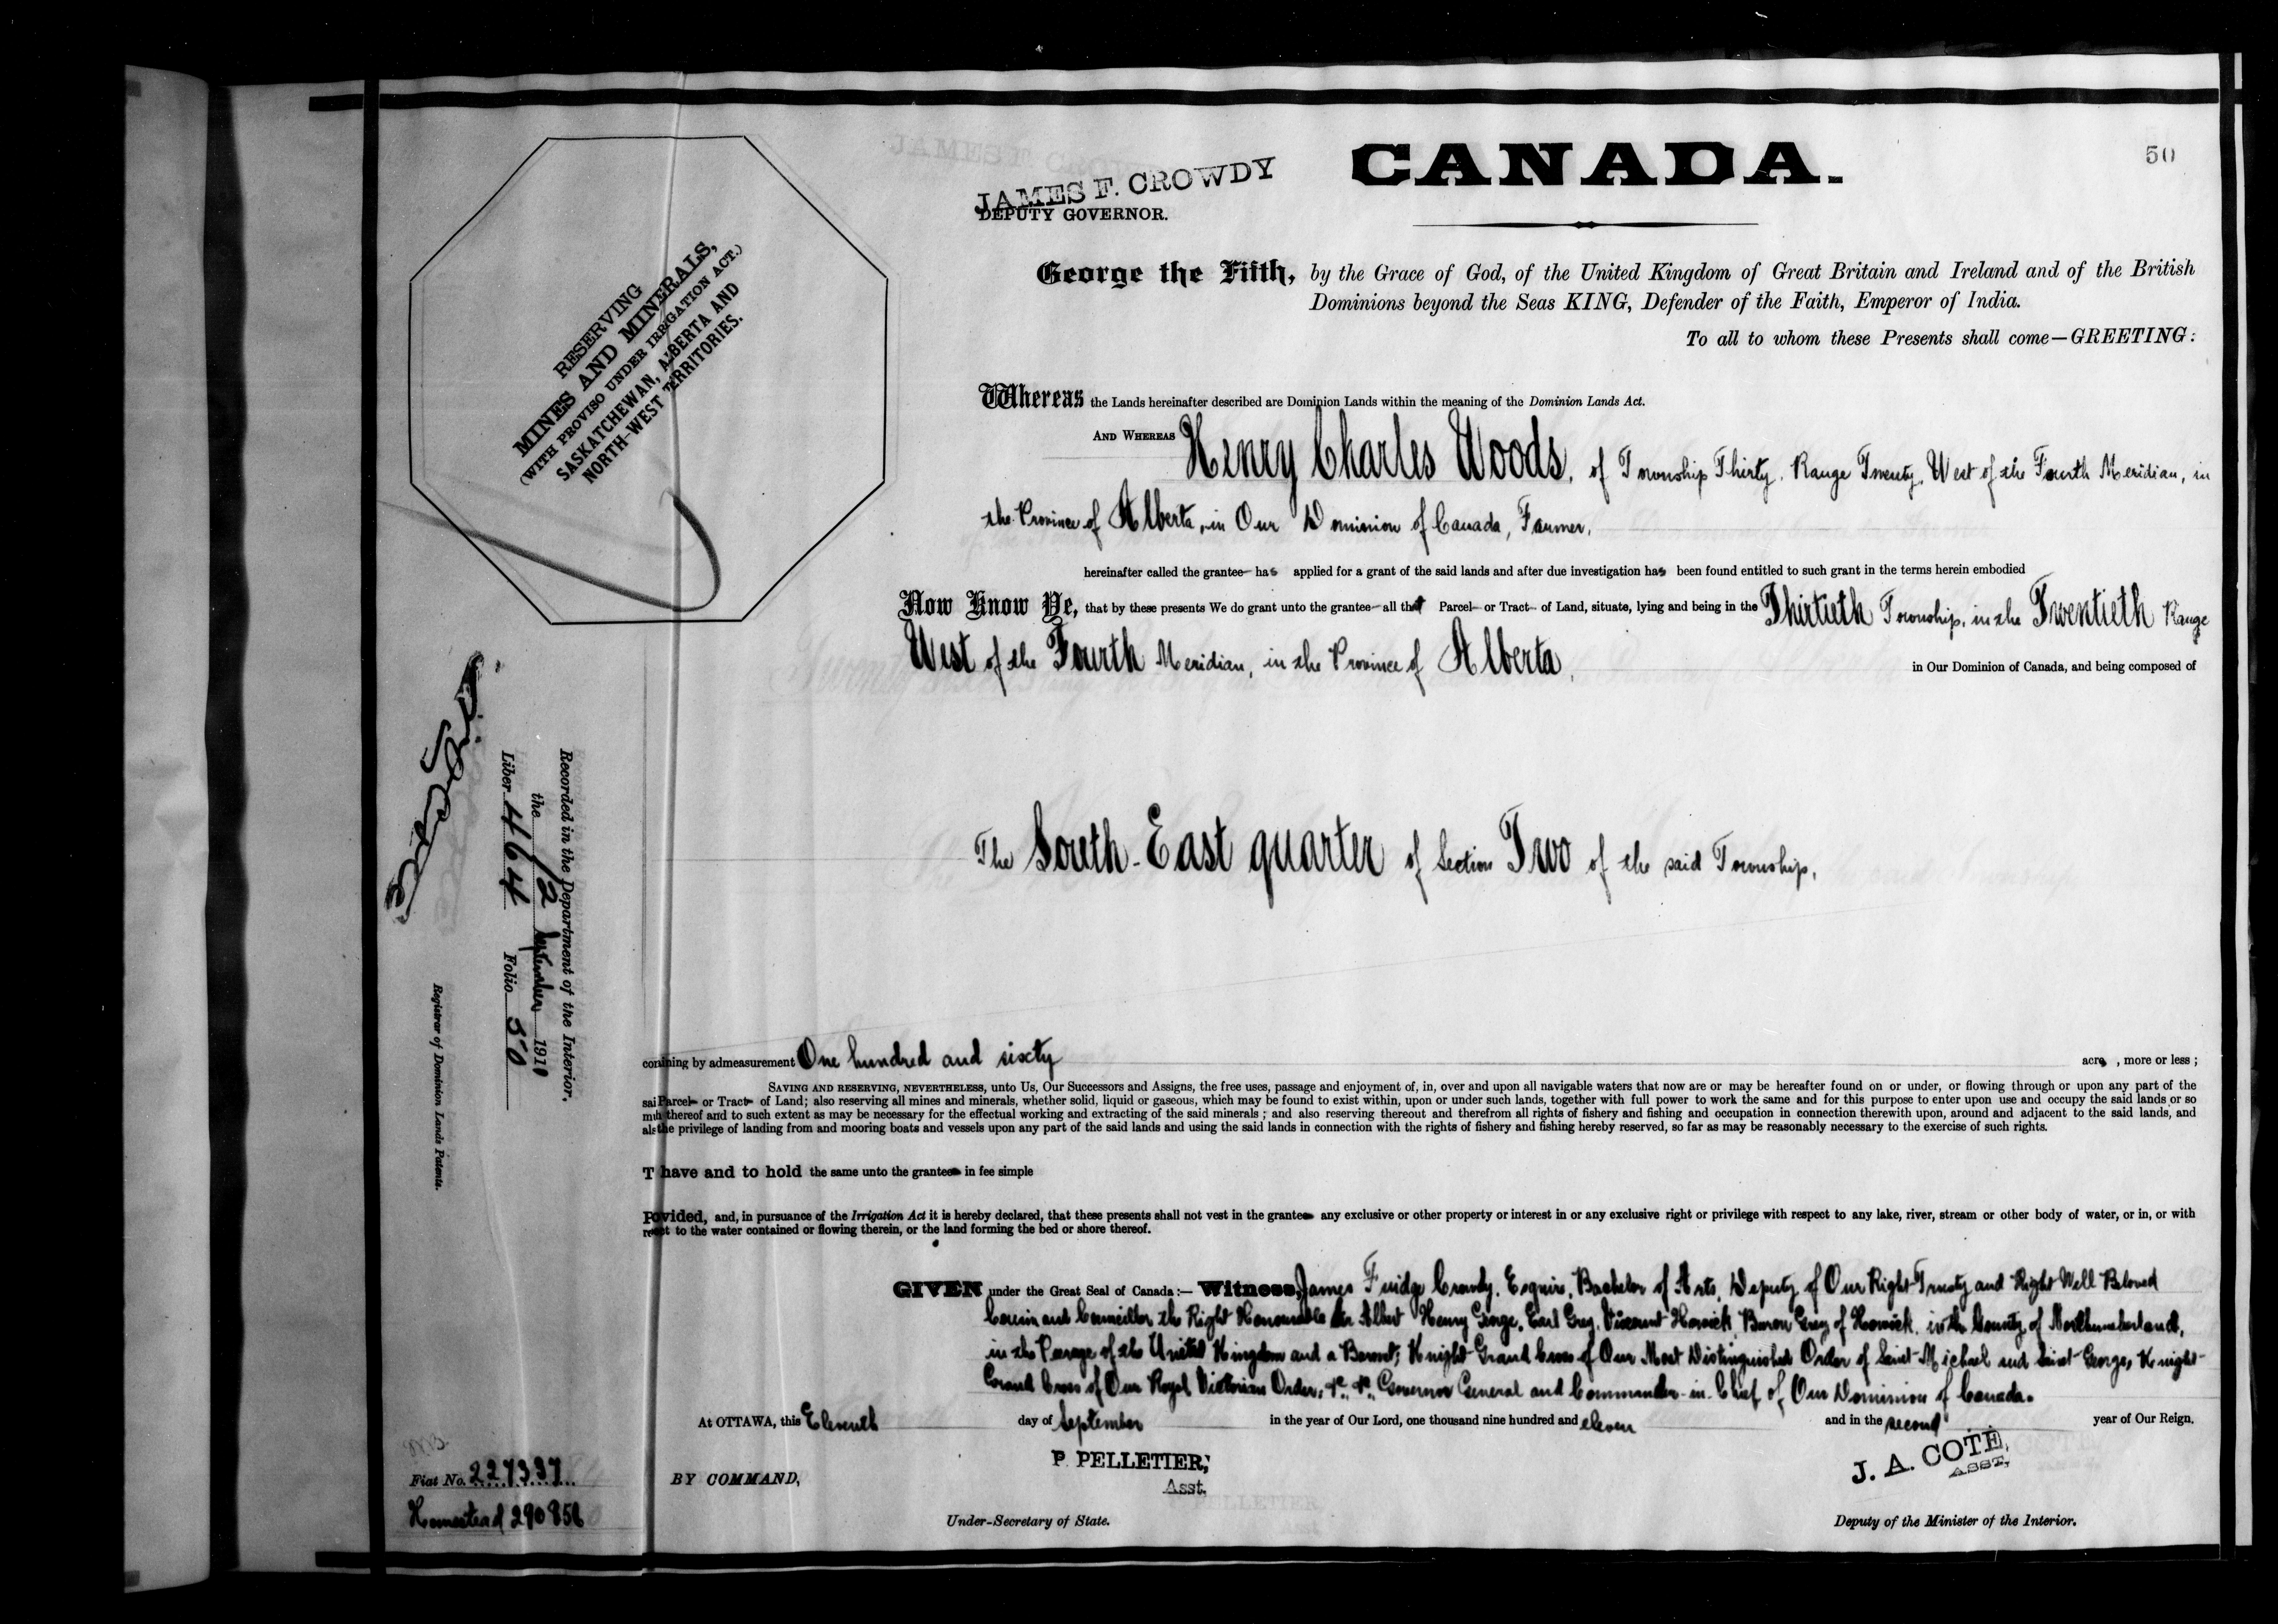 50
CANADA.
JAMES F. CROWDY
DEPUTY GOVERNOR.
George the Fifth, by the Grace of God, of the United Kingdom of Great Britain and Ireland and of the British
Dominions beyond the Seas KING, Defender of the Faith, Emperor of India.
To all to whom these Presents shall come—GREETING:
RESERVING
MINES AND MINERALS,
(WITH PROVISO UNDER IRRIGATION ACT.)
SASKATCHEWAN, ALBERTA AND
NORTH-WEST TERRITORIES.
Whereas the Lands hereinafter described are Dominion Lands within the meaning of the Dominion Lands Act.
AND WHEREAS Henry Charles Woods, of Township Thirty, Range Twenty, West of the Fourth Meridian, in
the Province of Alberta, in Our Dominion of Canada, Farmer,
hereinafter called the grantee has applied for a grant of the said lands and after due investigation has been found entitled to such grant in the terms herein embodied
Now Know Ye, that by these presents We do grant unto the grantee all that Parcel or Tract of Land, situate, lying and being in the Thirtieth Township, in the Twentieth Range
West of the Fourth Meridian, in the Province of Alberta, in Our Dominion of Canada, and being composed of
The South-East quarter of Section Two of the said Township,
Recorded in the Department of the Interior,
the 12 September 1911
Liber 464 Folio 50
Registrar of Dominion Lands Patents.
conining by admeasurement One hundred and sixty acres, more or less;
SAVING AND RESERVING, NEVERTHELESS, unto Us, Our Successors and Assigns, the free uses, passage and enjoyment of, in, over and upon all navigable waters that now are or may be hereafter found on or under, or flowing through or upon any part of the
sai Parcel or Tract of Land; also reserving all mines and minerals, whether solid, liquid or gaseous, which may be found to exist within, upon or under such lands, together with full power to work the same and for this purpose to enter upon use and occupy the said lands or so
muh thereof and to such extent as may be necessary for the effectual working and extracting of the said minerals; and also reserving thereout and therefrom all rights of fishery and fishing and occupation in connection therewith upon, around and adjacent to the said lands, and
als the privilege of landing from and mooring boats and vessels upon any part of the said lands and using the said lands in connection with the rights of fishery and fishing hereby reserved, so far as may be reasonably necessary to the exercise of such rights.
T have and to hold the same unto the grantee in fee simple
Povided, and, in pursuance of the Irrigation Act it is hereby declared, that these presents shall not vest in the grantee any exclusive or other property or interest in or any exclusive right or privilege with respect to any lake, river, stream or other body of water, or in, or with
reect to the water contained or flowing therein, or the land forming the bed or shore thereof.
GIVEN under the Great Seal of Canada:— Witness, James Fuidge Crowdy, Esquire, Bachelor of Arts, Deputy of Our Right Trusty and Right Well Beloved
Cousin and Councillor the Right Honourable Sir Albert Henry George, Earl Grey, Viscount Howick, Baron Grey of Howick, in the County of Northumberland,
in the Peerage of the United Kingdom and a Baronet; Knight Grand Cross of Our Most Distinguished Order of Saint Michael and Saint George, Knight
Grand Cross of Our Royal Victorian Order, &c., &c., Governor General and Commander-in-Chief of Our Dominion of Canada.
At OTTAWA, this Eleventh day of September in the year of Our Lord, one thousand nine hundred and eleven and in the second year of Our Reign.
Fiat No. 227337
Homestead 290856
BY COMMAND,
P. PELLETIER,
Asst.
Under-Secretary of State.
J. A. COTE,
ASST.
Deputy of the Minister of the Interior.